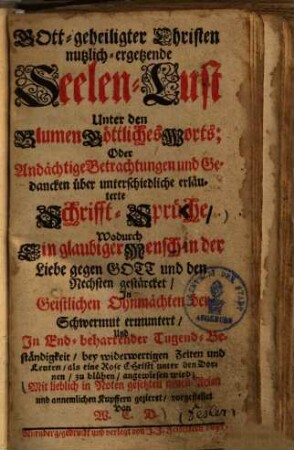 GOtt-geheiligter Christen
nutzlich-ergetzende
Seelen-Lust
Unter den
Blumen Göttliches Worts;
Oder
Andächtige Betrachtungen und Ge-
dancken über unterschiedliche erläu-
terte
Schrifft-Sprüche/
Wodurch
Ein glaubiger Mensch in der
Liebe gegen GOTT und den
Nechsten gestärcket/
In
Geistlichen Ohnmächten der
Schwermut ermuntert/
Und
In End-beharrender Tugend-Be-
ständigkeit/ bey widerwertigen Zeiten und
Leuten/ als eine Rose Christi unter den Dor-
nen/ zu blühen/ angewiesen wird;
Mit lieblich in Noten gesetzten neuen Arien
und annemlichen Kupffern gezieret/ vorgestellet
Von
W. C. D.
gedruckt und verlegt von J. J.